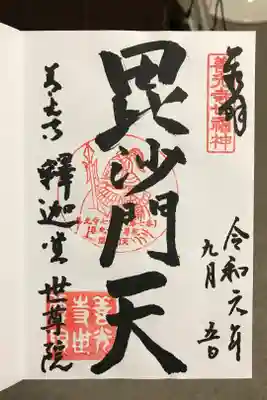 奉拝
善光寺七福神
令和元年
九月 五日
毘沙門天
善光寺 釋迦堂 世尊院